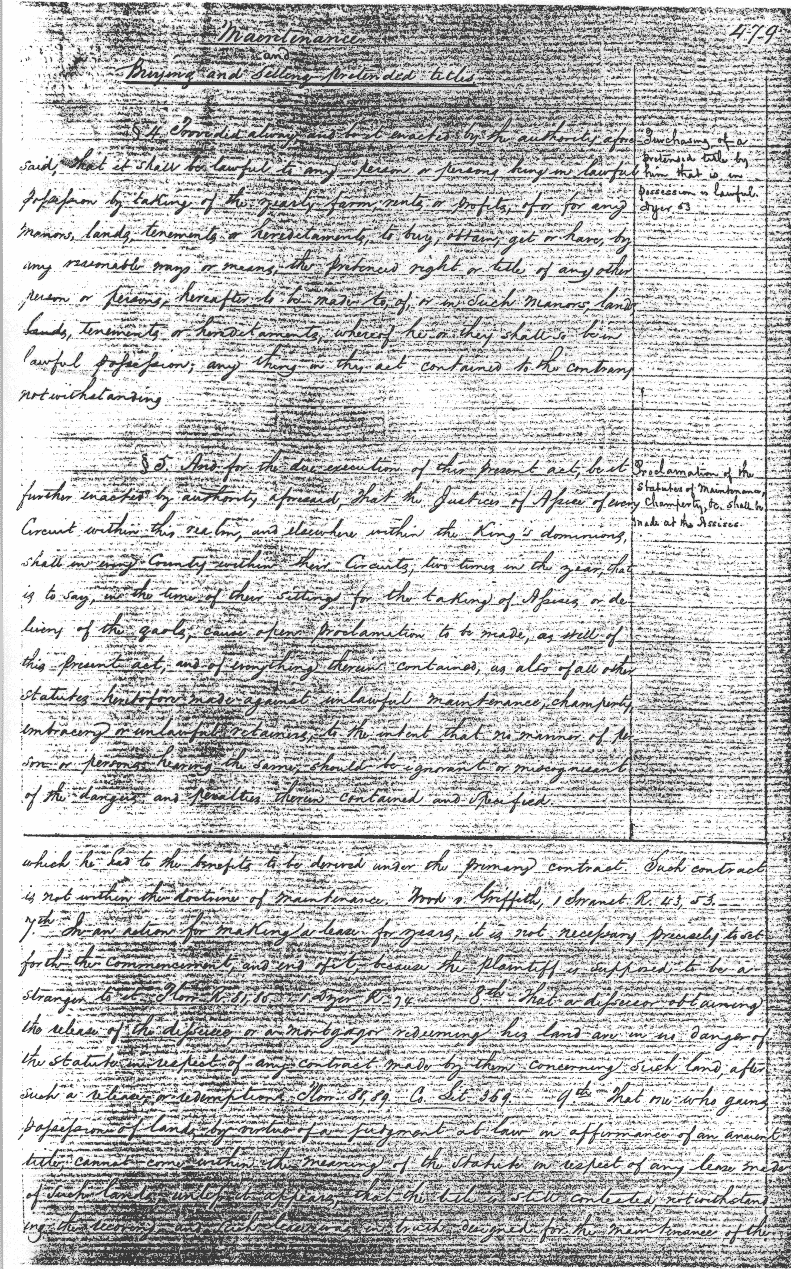 Maintenance
479
and
Buying and Selling pretended titles.
§ 4. Provided alway, and be it enacted by the authority afore-
said, that it shall be lawful to any person or persons being in lawful
possession by taking of the yearly farm, rents or profits, of or for any
manors, lands, tenements, or hereditaments, to buy, obtain, get or have, by
any reasonable ways or means, the pretenced right or title of any other
person or persons, hereafter to be made to, of, or in such manors, land
lands, tenements or hereditaments, whereof he or they shall so be in
lawful possession; any thing in this act contained to the contrary
notwithstanding
Purchasing of a
pretensed title by
him that is in
possession is lawful.
Dyer 53
§ 5. And for the due execution of this present act, be it
further enacted by authority aforesaid, that the Justices of Assise of every
Circuit within this realm, and elsewhere within the King's dominions,
shall in every County within their Circuits, two times in the year, that
is to say, in the time of their sittings for the taking of Assises or de-
livery of the gaols, cause open proclamation to be made, as well of
this present act, and of everything therein contained, as also of all other
statutes heretofore made against unlawful maintenance, champerty,
embracery or unlawful retainers, to the intent that no manner of per
son or persons hearing the same, should be ignorant or miscognisant
of the dangers and penalties therein contained and specified.
Proclamation of the
Statutes of Maintenance,
Champerty, &c. shall be
made at the Assises.
which he had to the benefits to be derived under the primary contract. Such contract
is not within the doctrine of maintenance. Wood v. Griffith, 1 Swanst R. 43, 53.
7th In an action for making a lease for years, it is not necessary precisely to set
forth the commencement, and end of it, because the plaintiff is supposed to be a
stranger to it. Plow. R. 81, 85. 1 Dyer R. 74. 8th That a disseisor obtaining
the release of the disseisee, or a mortgagor redeeming his land are in no danger of
the statute in respect of any contract made by them concerning such land, after
such a release, or redemption. Plow. 88, 89. Co. Lit 369. 9th That one who gains
possession of lands by virtue of a judgment at law in affirmance of an ancient
title, cannot come within the meaning of the statute in respect of any lease made
of such lands, unless it appears, that the title is still contested, notwithstand
ing the recovery, and such lease was in truth designed for the maintenance of the